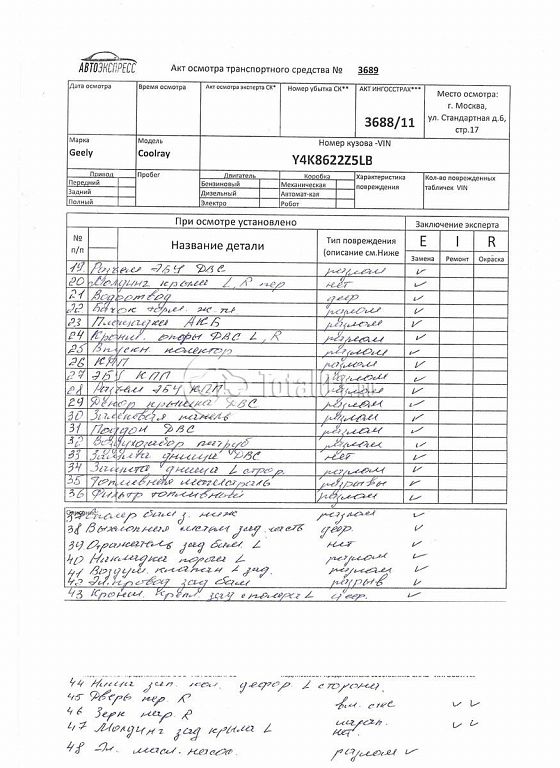 АВТОЭКСПРЕСС
Акт осмотра транспортного средства № 3689
Дата осмотра Время осмотра Акт осмотра эксперта СК* Номер убытка СК** АКТ ИНГОССТРАХ*** Место осмотра:
3688/11 г. Москва, ул. Стандартная д.6, стр.17
Марка Модель Номер кузова -VIN
Geely Coolray Y4K8622Z5LB
Привод Пробег Двигатель Коробка Характеристика повреждения Кол-во поврежденных табличек VIN
Передний Бензиновый Механическая
Задний Дизельный Автомат-кая
Полный Электро Робот
При осмотре установлено Заключение эксперта
№ п/п Название детали Тип повреждения (описание см.Ниже E I R
Замена Ремонт Окраска
19 Разъем ЭБУ ДВС разлом ✓
20 Молдинг крыла L, R пер нет ✓
21 Водоотвод деф ✓
22 Бачок торм. ж-ти разлом ✓
23 Площадка АКБ разлом ✓
24 Кронш. опоры ДВС L, R разлом ✓
25 Впускн колектор разлом ✓
26 КПП разлом ✓
27 ЭБУ КПП разлом ✓
28 Разъем ЭБУ КПП разлом ✓
29 Фиксатор крышка ДВС разлом ✓
30 панель разлом ✓
31 Поддон ДВС разлом ✓
32 Воздухозабор патруб разлом ✓
33 Защита днища ДВС нет ✓
34 Защита днища L стор. разлом ✓
35 Топливная магистраль разрывы ✓
36 Фильтр топливный разлом ✓
37 Спойлер бам з. ниж разлом ✓
38 Выхлопная система зад. часть деф. ✓
39 Отражатель зад бам. L нет ✓
40 Накладка порога L разлом ✓
41 Воздуш. клапан L зад. разлом ✓
42 Эл. провод зад бам разрыв ✓
43 Кронш. креп. зад спойлера L деф. ✓
44 Ниша зап. кол. дефор. L сторона.
45 Дверь пер. R ✓ ✓
46 Зерк пер R царап. ✓ ✓
47 Молдинг зад крыла L нет.
48 масл. насос. разлом ✓
Total